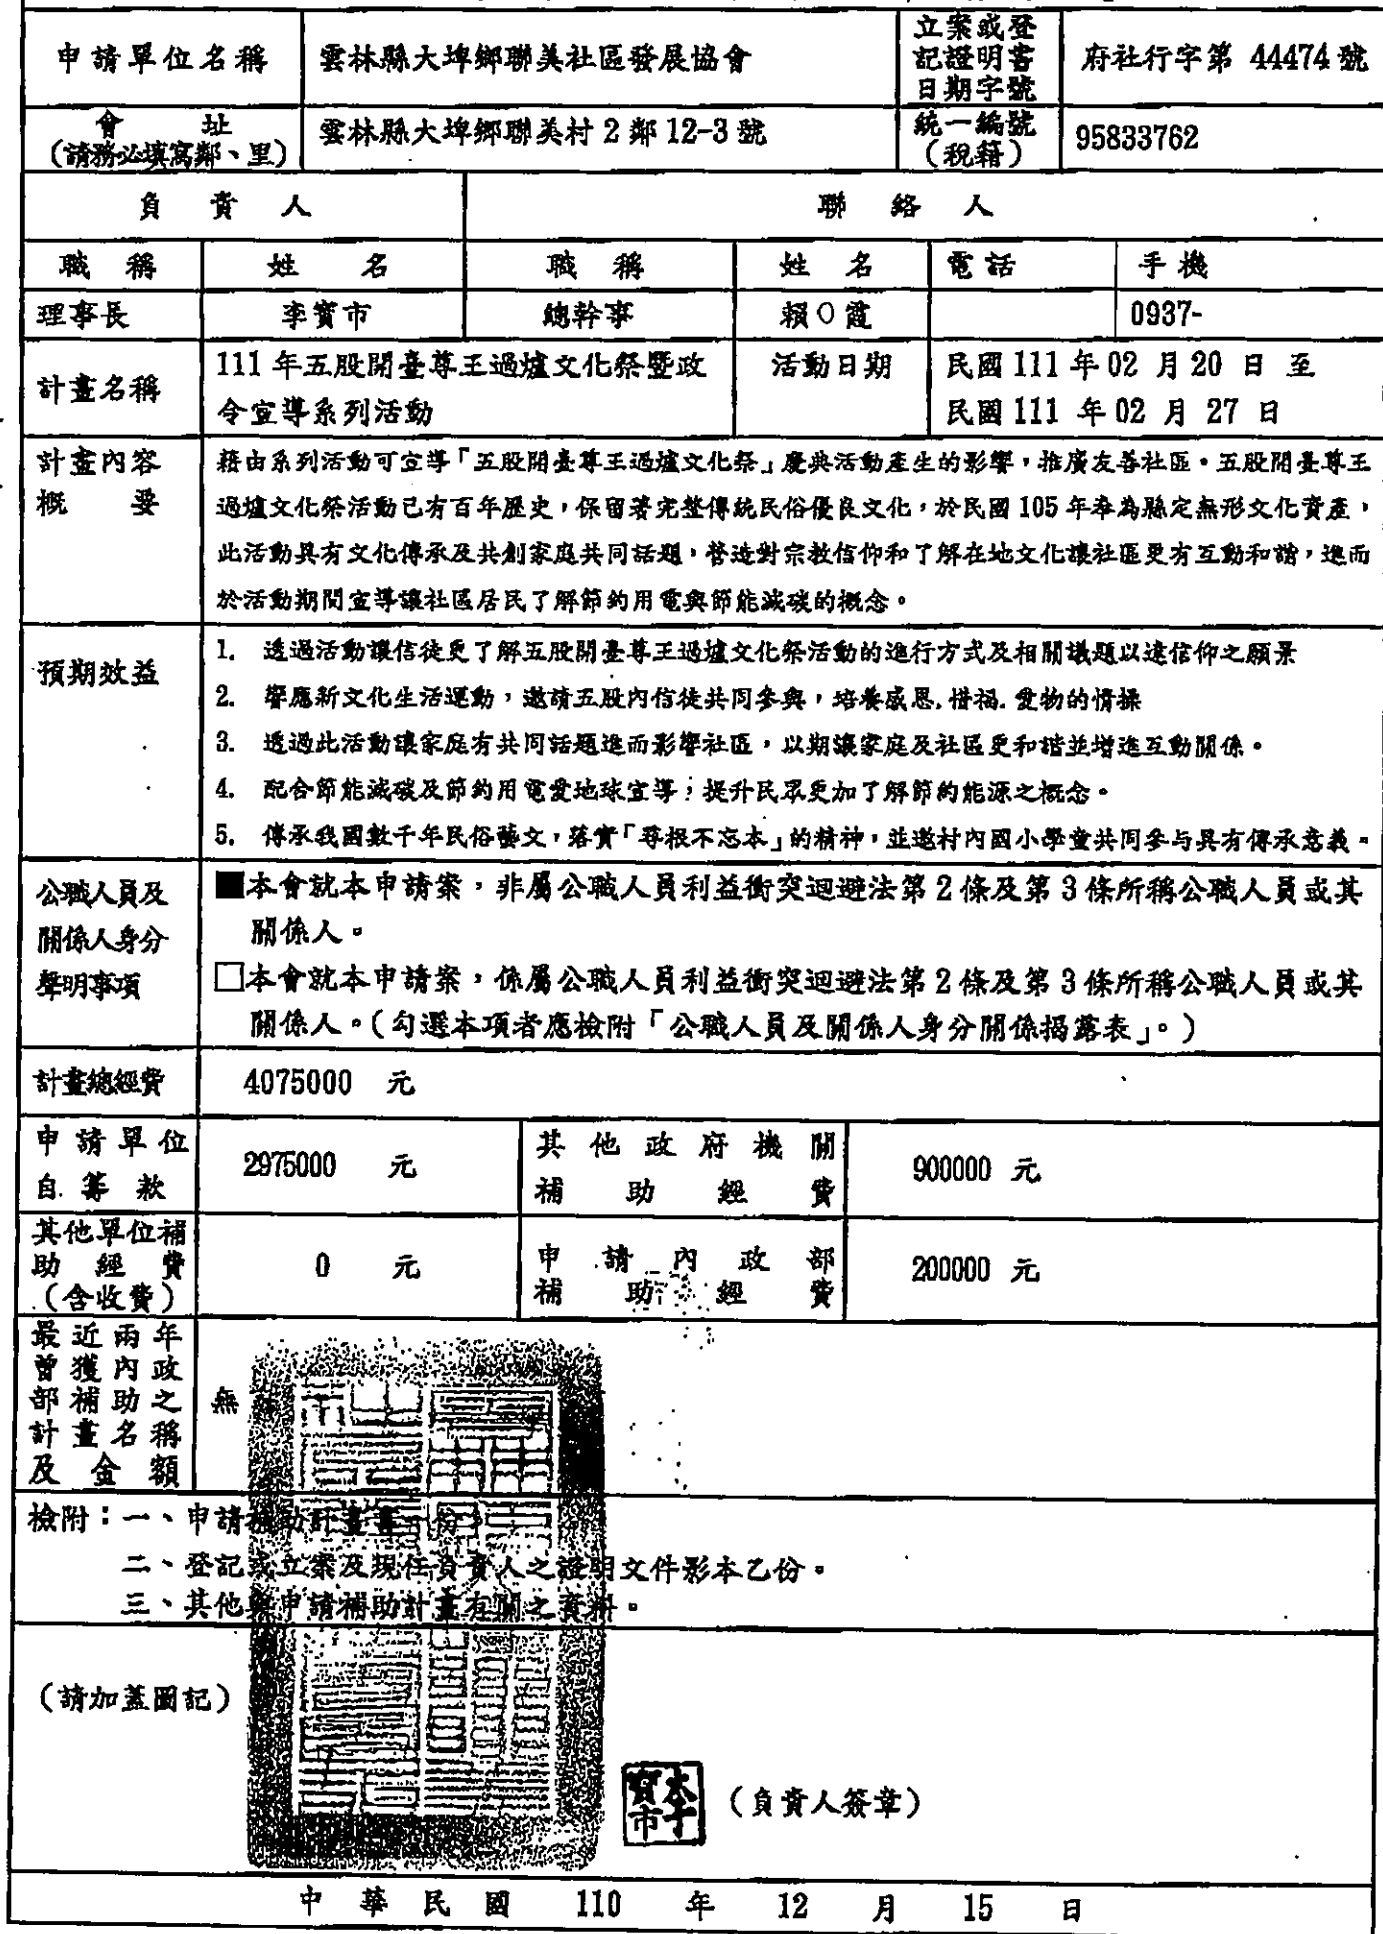 申請單位名稱 雲林縣大埤鄉聯美社區發展協會 立案或登記證明書日期字號 府社行字第 44474 號
會址
(請務必填寫鄰、里) 雲林縣大埤鄉聯美村 2 鄰 12-3 號 統一編號(稅籍) 95833762
負責人 聯絡人
職稱 姓名 職稱 姓名 電話 手機
理事長 李寶市 總幹事 賴○霞 0937-
計畫名稱 111 年五股開臺尊王過爐文化祭暨政令宣導系列活動 活動日期 民國 111 年 02 月 20 日 至
民國 111 年 02 月 27 日
計畫內容概要
藉由系列活動可宣導「五股開臺尊王過爐文化祭」慶典活動產生的影響,推廣友善社區。五股開臺尊王
過爐文化祭活動已有百年歷史,保留著完整傳統民俗優良文化,於民國 105 年奉為縣定無形文化資產,
此活動具有文化傳承及共創家庭共同話題,營造對宗教信仰和了解在地文化讓社區更有互動和諧,進而
於活動期間宣導讓社區居民了解節約用電與節能減碳的概念。
預期效益
1. 透過活動讓信徒更了解五股開臺尊王過爐文化祭活動的進行方式及相關議題以達信仰之願景
2. 響應新文化生活運動,邀請五股內信徒共同參與,培養感恩.惜福.愛物的情操
3. 透過此活動讓家庭有共同話題進而影響社區,以期讓家庭及社區更和諧並增進互動關係。
4. 配合節能減碳及節約用電愛地球宣導;提升民眾更加了解節約能源之概念。
5. 傳承我國數千年民俗藝文,落實「尋根不忘本」的精神,並邀村內國小學童共同參与具有傳承意義。
公職人員及關係人身分聲明事項
■本會就本申請案,非屬公職人員利益衝突迴避法第 2 條及第 3 條所稱公職人員或其
關係人。
□本會就本申請案,係屬公職人員利益衝突迴避法第 2 條及第 3 條所稱公職人員或其
關係人。(勾選本項者應檢附「公職人員及關係人身分關係揭露表」。)
計畫總經費 4075000 元
申請單位自籌款 2975000 元 其他政府機關補助經費 900000 元
其他單位補助經費(含收費) 0 元 申請內政部補助經費 200000 元
最近兩年曾獲內政部補助之計畫名稱及金額 無
檢附:一、申請補助計畫書一份。
二、登記或立案及現任負責人之證明文件影本乙份。
三、其他與申請補助計畫有關之資料。
(請加蓋圖記)
李寶市 (負責人簽章)
中華民國 110 年 12 月 15 日